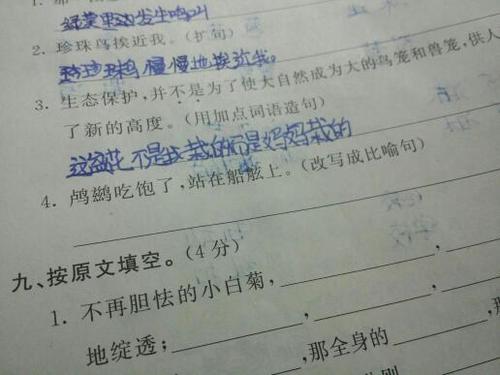 发生鸣叫
2. 珍珠鸟挨近我。(扩句)
珍珠鸟慢慢地挨近我。
3. 生态保护,并不是为了使大自然成为大的鸟笼和兽笼,供人
了新的高度。(用加点词语造句)
这盆花不是我栽的而是妈妈栽的
4. 鸬鹚吃饱了,站在船舷上。(改写成比喻句)
九、按原文填空。(4分)
1. 不再胆怯的小白菊,
地绽透;
,那全身的